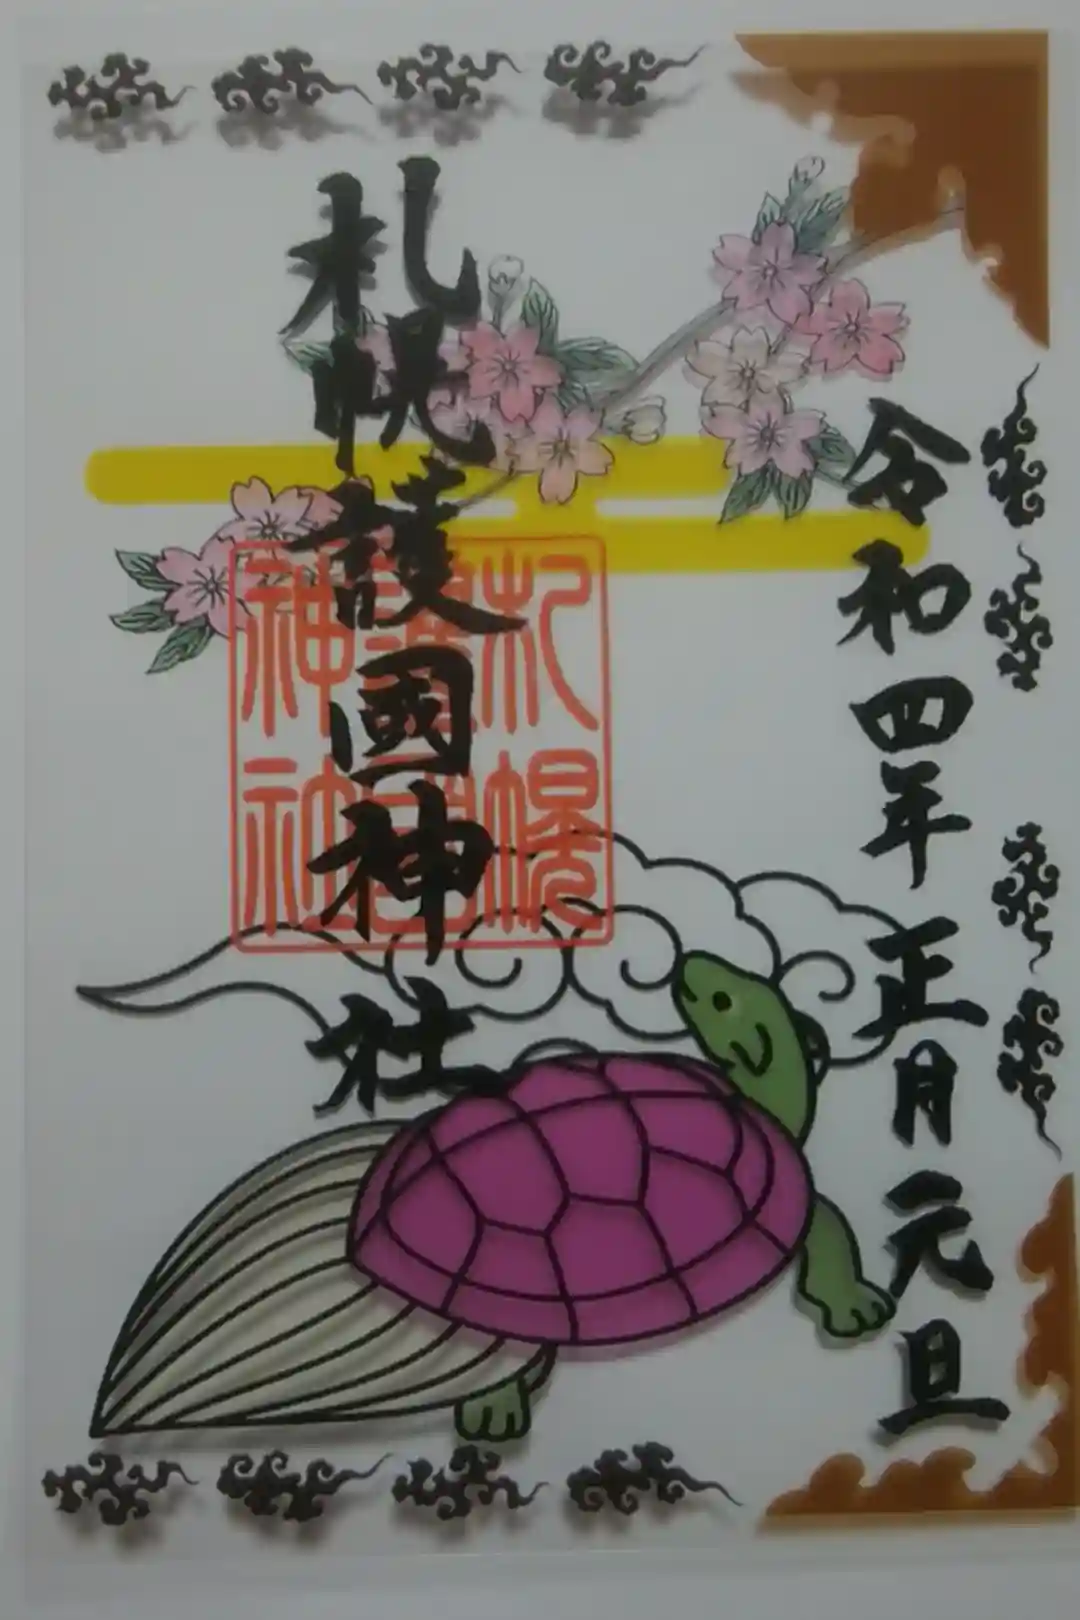 令和四年正月元旦
札幌護國神社
札幌
護國
神社